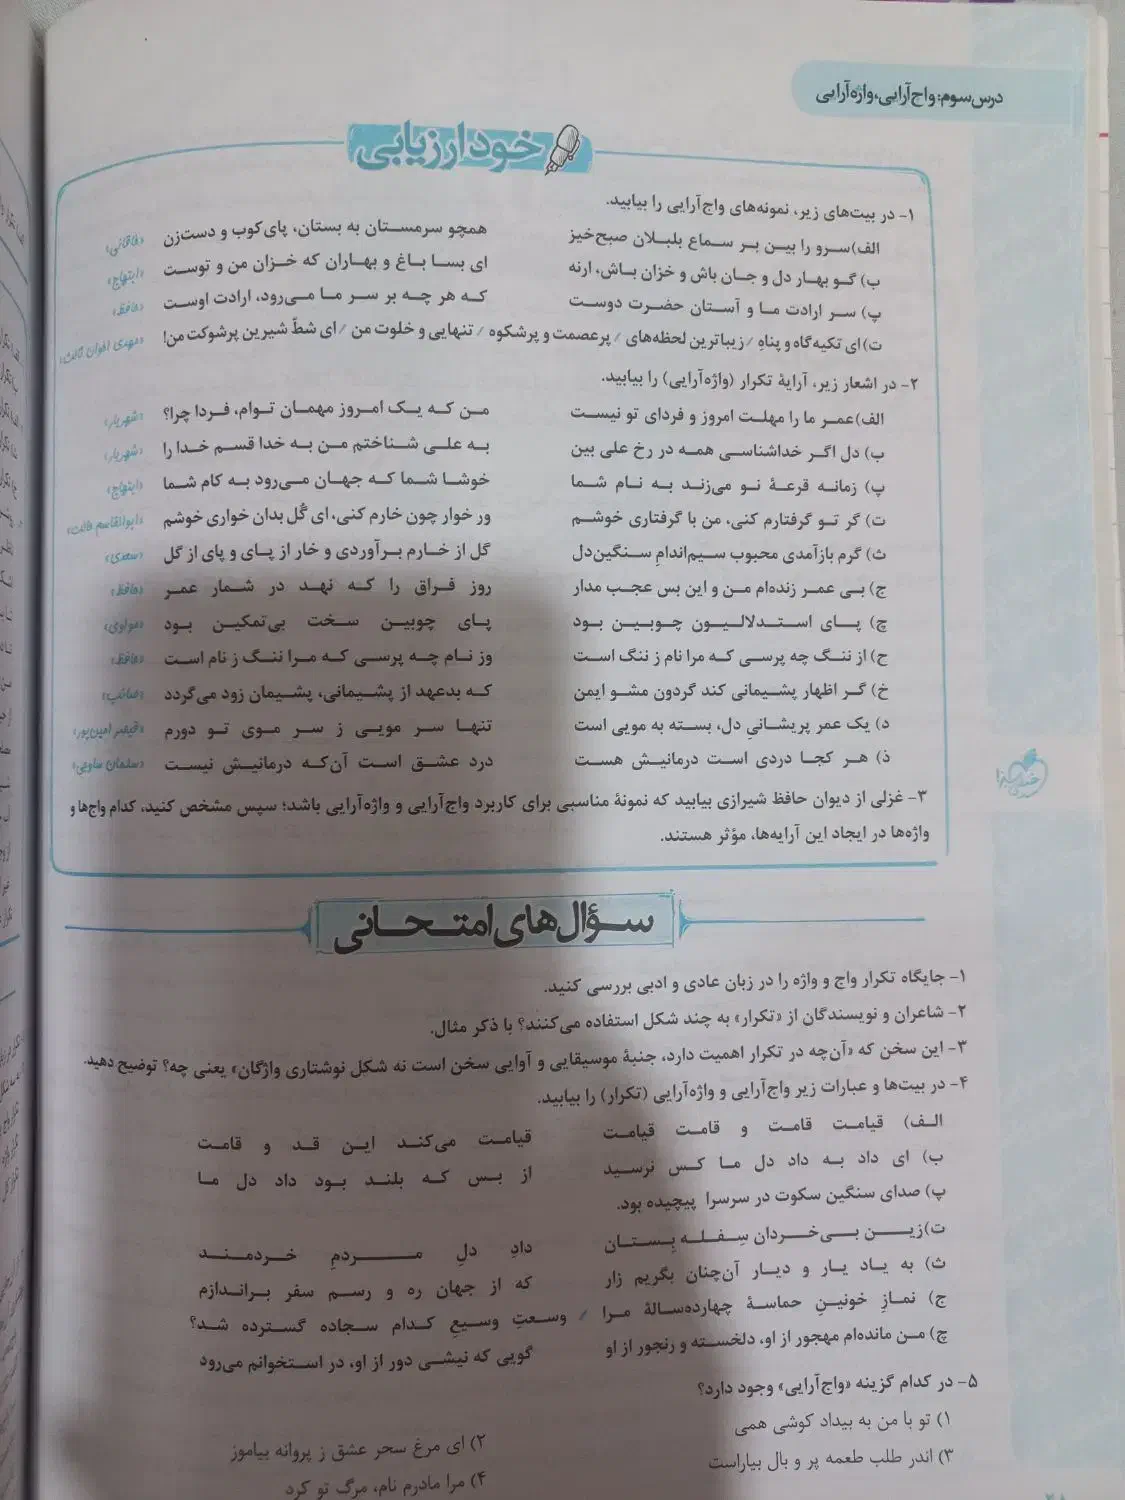 درس سوم: واج‌آرایی، واژه‌آرایی
خودارزیابی
۱- در بیت‌های زیر، نمونه‌های واج‌آرایی را بیابید.
الف) سرو را بین بر سماع بلبلان صبح‌خیز همچو سرمستان به بستان، پای‌کوب و دست‌زن «خاقانی»
ب) گو بهار دل و جان باش و خزان باش، ارنه ای بسا باغ و بهاران که خزان من و توست «ابتهاج»
پ) سر ارادت ما و آستان حضرت دوست که هر چه بر سر ما می‌رود، ارادت اوست «حافظ»
ت) ای تکیه‌گاه و پناهِ / زیباترین لحظه‌های / پرعصمت و پرشکوه / تنهایی و خلوت من / ای شطّ شیرین پرشوکت من! «مهدی اخوان ثالث»
۲- در اشعار زیر، آرایهٔ تکرار (واژه‌آرایی) را بیابید.
الف) عمر ما را مهلت امروز و فردای تو نیست من که یک امروز مهمان توام، فردا چرا؟ «شهریار»
ب) دل اگر خداشناسی همه در رخ علی بین به علی شناختم من به خدا قسم خدا را «شهریار»
پ) زمانه قرعهٔ نو می‌زند به نام شما خوشا شما که جهان می‌رود به کام شما «ابتهاج»
ت) گر تو گرفتارم کنی، من با گرفتاری خوشم ور خوار چون خارم کنی، ای گُل بدان خواری خوشم «ابوالقاسم حالت»
ث) گرم بازآمدی محبوب سیم‌اندامِ سنگین‌دل گل از خارم برآوردی و خار از پای و پای از گل «سعدی»
ج) بی عمر زنده‌ام من و این بس عجب مدار روز فراق را که نهد در شمار عمر «حافظ»
چ) پای استدلالیون چوبین بود پای چوبین سخت بی‌تمکین بود «مولوی»
ح) از ننگ چه پرسی که مرا نام ز ننگ است وز نام چه پرسی که مرا ننگ ز نام است «حافظ»
خ) گر اظهار پشیمانی کند گردون مشو ایمن که بدعهد از پشیمانی، پشیمان زود می‌گردد «صائب»
د) یک عمر پریشانیِ دل، بسته به مویی است تنها سر مویی ز سر موی تو دورم «قیصر امین‌پور»
ذ) هر کجا دردی است درمانیش هست درد عشق است آن‌که درمانیش نیست «سلمان ساوجی»
۳- غزلی از دیوان حافظ شیرازی بیابید که نمونهٔ مناسبی برای کاربرد واج‌آرایی و واژه‌آرایی باشد؛ سپس مشخص کنید، کدام واج‌ها و
واژه‌ها در ایجاد این آرایه‌ها، مؤثر هستند.
سؤال‌های امتحانی
۱- جایگاه تکرار واج و واژه را در زبان عادی و ادبی بررسی کنید.
۲- شاعران و نویسندگان از «تکرار» به چند شکل استفاده می‌کنند؟ با ذکر مثال.
۳- این سخن که «آن‌چه در تکرار اهمیت دارد، جنبهٔ موسیقایی و آوایی سخن است نه شکل نوشتاری واژگان» یعنی چه؟ توضیح دهید.
۴- در بیت‌ها و عبارات زیر واج‌آرایی و واژه‌آرایی (تکرار) را بیابید.
الف) قیامت قامت و قامت قیامت قیامت می‌کند این قد و قامت
ب) ای داد به داد دل ما کس نرسید از بس که بلند بود داد دل ما
پ) صدای سنگین سکوت در سرسرا پیچیده بود.
ت) زین بی‌خردان سِفله بِستان دادِ دلِ مردمِ خردمند
ث) به یاد یار و دیار آن‌چنان بگریم زار که از جهان ره و رسم سفر براندازم
ج) نمازِ خونینِ حماسهٔ چهارده‌سالهٔ مرا / وسعتِ وسیعِ کدام سجاده گسترده شد؟
چ) من مانده‌ام مهجور از او، دلخسته و رنجور از او گویی که نیشی دور از او، در استخوانم می‌رود
۵- در کدام گزینه «واج‌آرایی» وجود دارد؟
۱) تو با من به بیداد کوشی همی
۲) ای مرغ سحر عشق ز پروانه بیاموز
۳) اندر طلب طعمه پر و بال بیاراست
۴) مرا مادرم نام، مرگ تو کرد